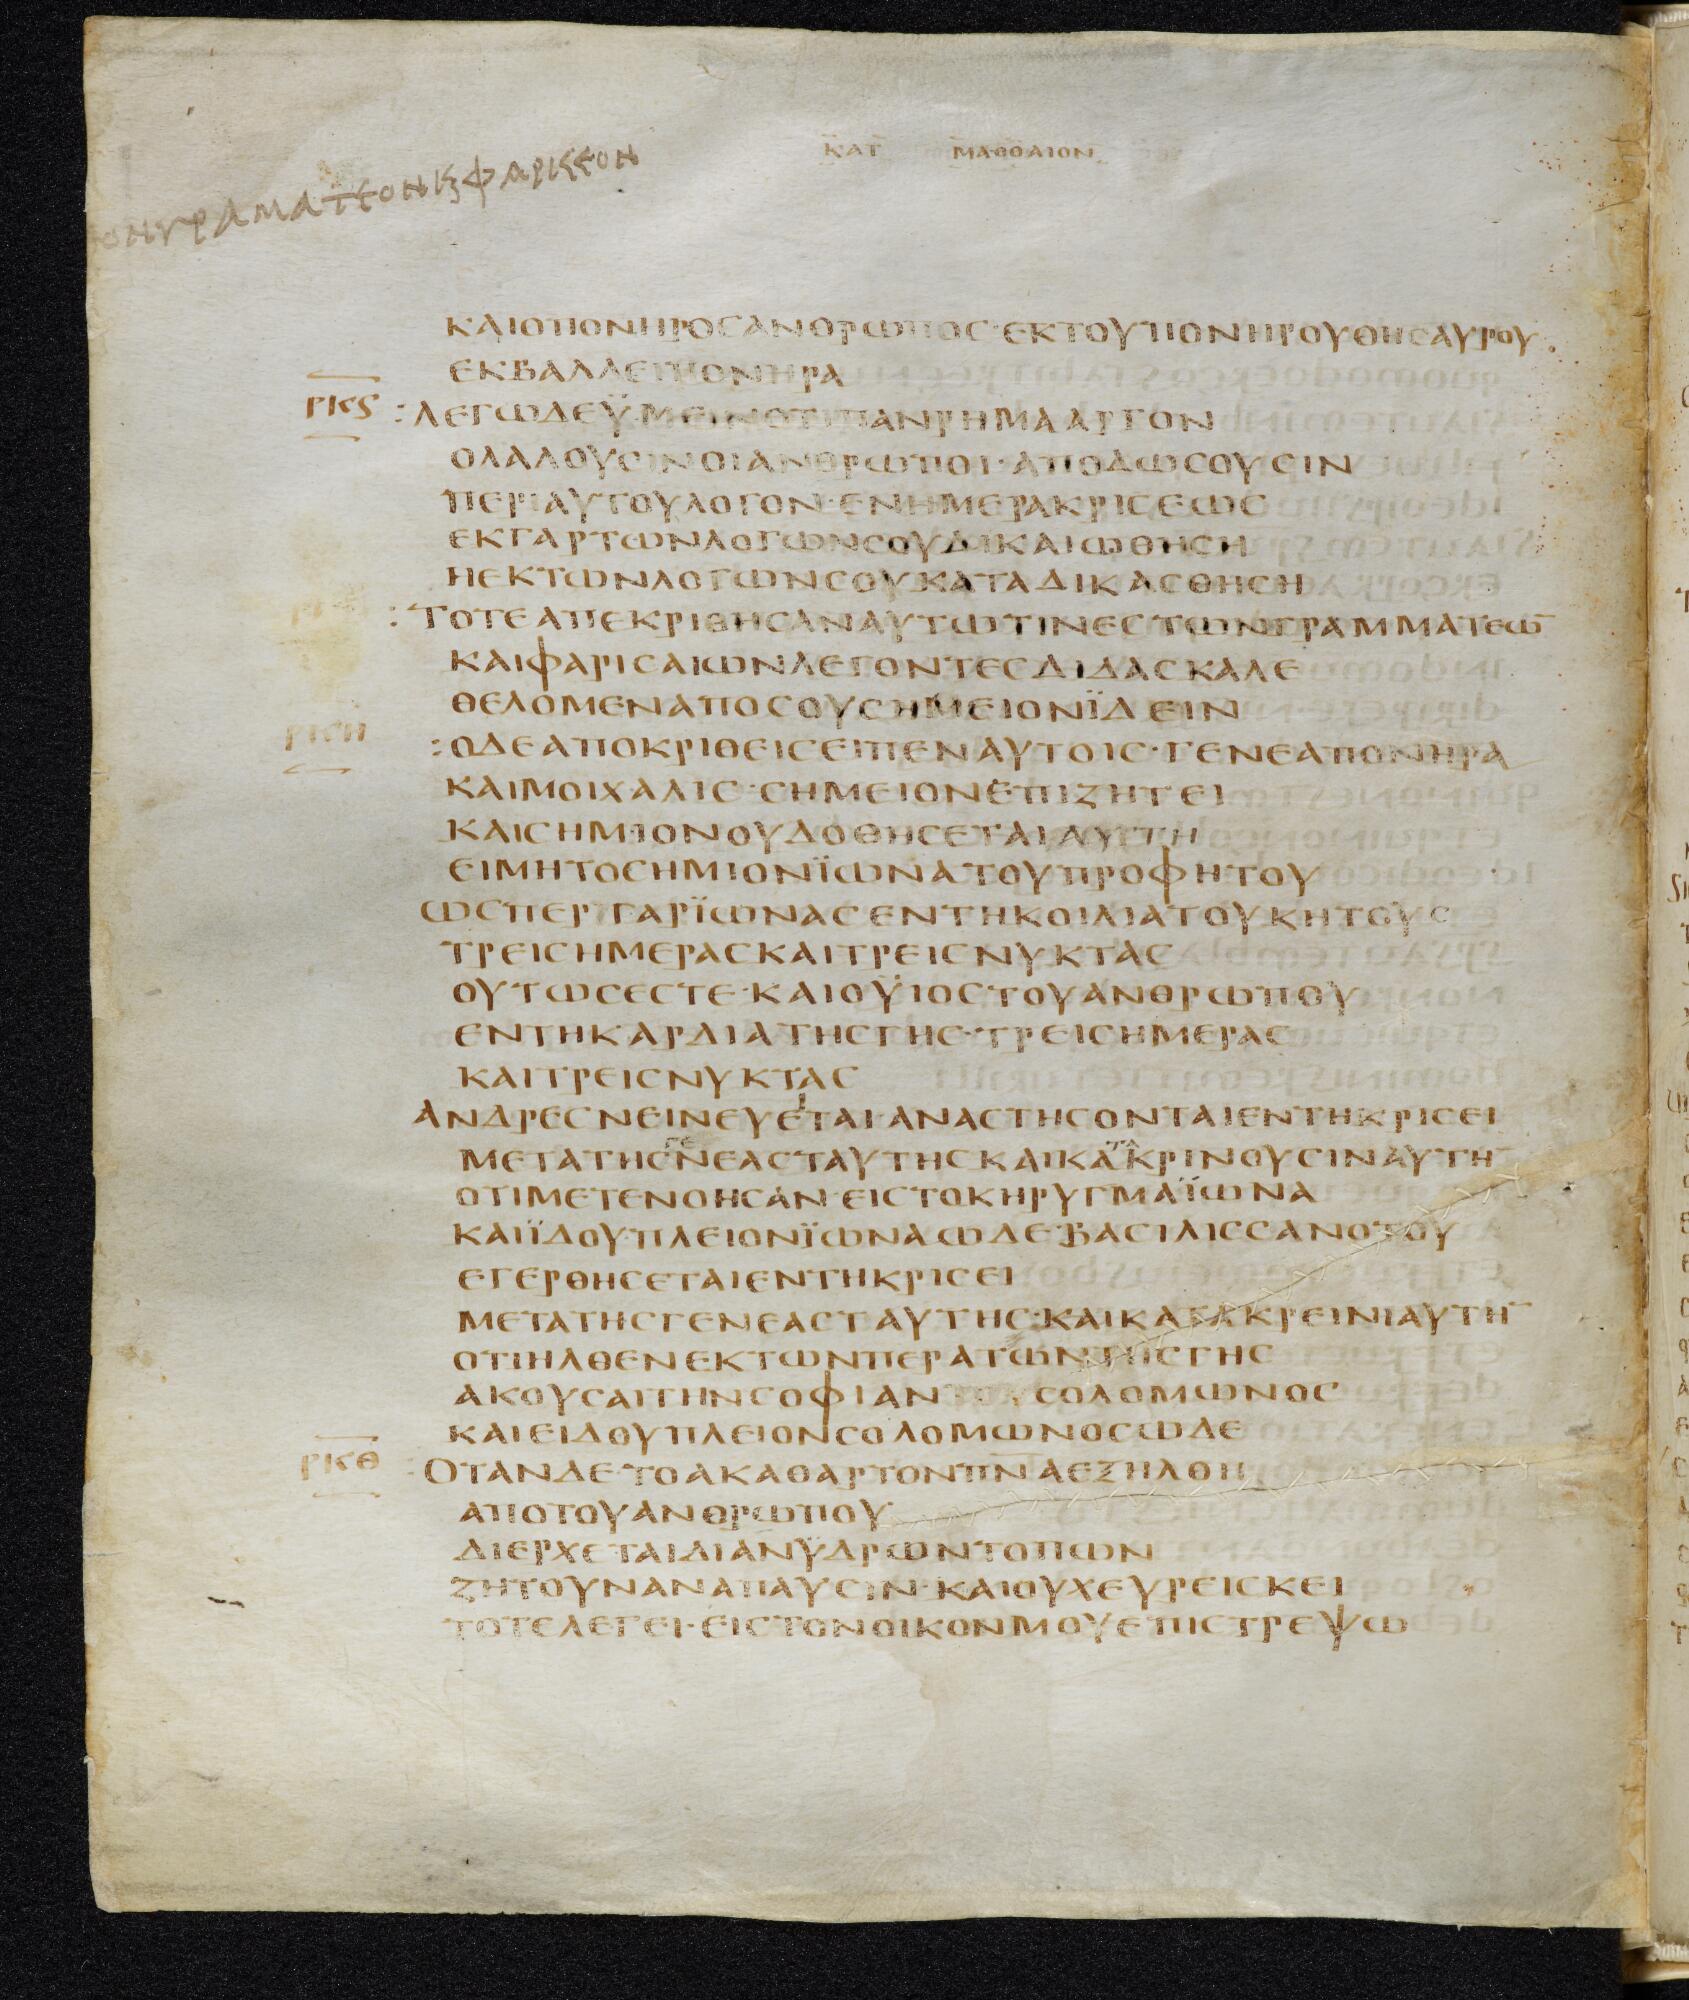 ΚΑΤ ΜΑΘΘΑΙΟΝ
ΟΝΓΡΑΜΑΤΕΟΝ Κϛ ΦΑΡΙΣΕΟΝ
ΚΑΙΟΠΟΝΗΡΟϹΑΝΘΡΩΠΟϹ·ΕΚΤΟΥΠΟΝΗΡΟΥΘΗϹΑΥΡΟΥ
ΕΚΒΑΛΛΕΙΠΟΝΗΡΑ
ΡΚϛ :ΛΕΓΩΔΕΫΜΕΙΝΟΤΙΠΑΝΡΗΜΑΑΡΓΟΝ
ΟΛΑΛΟΥϹΙΝΟΙΑΝΘΡΩΠΟΙ·ΑΠΟΔΩϹΟΥϹΙΝ
ΠΕΡΙΑΥΤΟΥΛΟΓΟΝ·ΕΝΗΜΕΡΑΚΡΙϹΕΩϹ
ΕΚΓΑΡΤΩΝΛΟΓΩΝϹΟΥΔΙΚΑΙΩΘΗϹΗ
ΗΕΚΤΩΝΛΟΓΩΝϹΟΥΚΑΤΑΔΙΚΑϹΘΗϹΗ
:ΤΟΤΕΑΠΕΚΡΙΘΗϹΑΝΑΥΤΩΤΙΝΕϹΤΩΝΓΡΑΜΜΑΤΕΩ̅
ΚΑΙΦΑΡΙϹΑΙΩΝΛΕΓΟΝΤΕϹΔΙΔΑϹΚΑΛΕ
ΘΕΛΟΜΕΝΑΠΟϹΟΥϹΗΜΕΙΟΝΪΔΕΙΝ
ΡΚΗ :ΟΔΕΑΠΟΚΡΙΘΕΙϹΕΙΠΕΝΑΥΤΟΙϹ·ΓΕΝΕΑΠΟΝΗΡΑ
ΚΑΙΜΟΙΧΑΛΙϹ·ϹΗΜΕΙΟΝΕΠΙΖΗΤΕΙ
ΚΑΙϹΗΜΙΟΝΟΥΔΟΘΗϹΕΤΑΙΑΥΤΗ
ΕΙΜΗΤΟϹΗΜΙΟΝΪΩΝΑΤΟΥΠΡΟΦΗΤΟΥ
ΩϹΠΕΡΓΑΡΪΩΝΑϹΕΝΤΗΚΟΙΛΙΑΤΟΥΚΗΤΟΥϹ
ΤΡΕΙϹΗΜΕΡΑϹΚΑΙΤΡΕΙϹΝΥΚΤΑϹ
ΟΥΤΩϹΕϹΤΕ·ΚΑΙΟΫΙΟϹΤΟΥΑΝΘΡΩΠΟΥ
ΕΝΤΗΚΑΡΔΙΑΤΗϹΓΗϹ·ΤΡΕΙϹΗΜΕΡΑϹ
ΚΑΙΤΡΕΙϹΝΥΚΤΑϹ
ΑΝΔΡΕϹΝΕΙΝΕΥΕΤΑΙ·ΑΝΑϹΤΗϹΟΝΤΑΙΕΝΤΗΚΡΙϹΕΙ
ΜΕΤΑΤΗϹΓΕΝΕΑϹΤΑΥΤΗϹΚΑΙΚΑΤΑΚΡΙΝΟΥϹΙΝΑΥΤΗ̅
ΟΤΙΜΕΤΕΝΟΗϹΑΝ·ΕΙϹΤΟΚΗΡΥΓΜΑΪΩΝΑ
ΚΑΙΪΔΟΥΠΛΕΙΟΝΪΩΝΑΩΔΕ·ΒΑϹΙΛΙϹϹΑΝΟΤΟΥ
ΕΓΕΡΘΗϹΕΤΑΙΕΝΤΗΚΡΙϹΕΙ
ΜΕΤΑΤΗϹΓΕΝΕΑϹΤΑΥΤΗϹ·ΚΑΙΚΑΤΑΚΡΕΙΝΙΑΥΤΗ̅
ΟΤΙΗΛΘΕΝΕΚΤΩΝΠΕΡΑΤΩΝΤΗϹΓΗϹ
ΑΚΟΥϹΑΙΤΗΝϹΟΦΙΑΝ ϹΟΛΟΜΩΝΟϹ
ΚΑΙΕΙΔΟΥΠΛΕΙΟΝϹΟΛΟΜΩΝΟϹΩΔΕ
ΡΚΘ :ΟΤΑΝΔΕ·ΤΟΑΚΑΘΑΡΤΟΝΠΝ̅ΑΕΞΗΛΘΗ
ΑΠΟΤΟΥΑΝΘΡΩΠΟΥ
ΔΙΕΡΧΕΤΑΙΔΙΑΝΫΔΡΩΝΤΟΠΩΝ
ΖΗΤΟΥΝΑΝΑΠΑΥϹΙΝ·ΚΑΙΟΥΧΕΥΡΕΙϹΚΕΙ
ΤΟΤΕΛΕΓΕΙ·ΕΙϹΤΟΝΟΙΚΟΝΜΟΥΕΠΙϹΤΡΕΨΩ